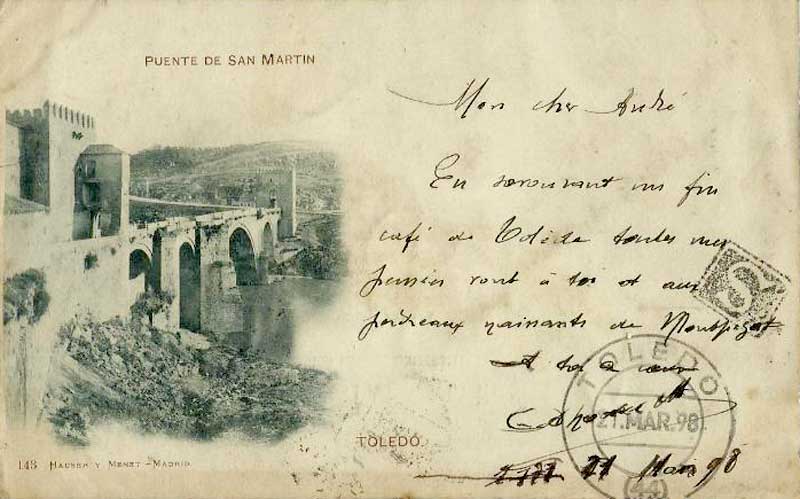 PUENTE DE SAN MARTIN
Mon cher André
En savourant un fin
café de Tolède toutes mes
pensées vont à toi et aux
perdreaux naissants de
A toi de cœur
TOLEDO
21 MAR. 98
(44)
21 Mars 98
TOLEDO
143 HAUSER Y MENET.-MADRID